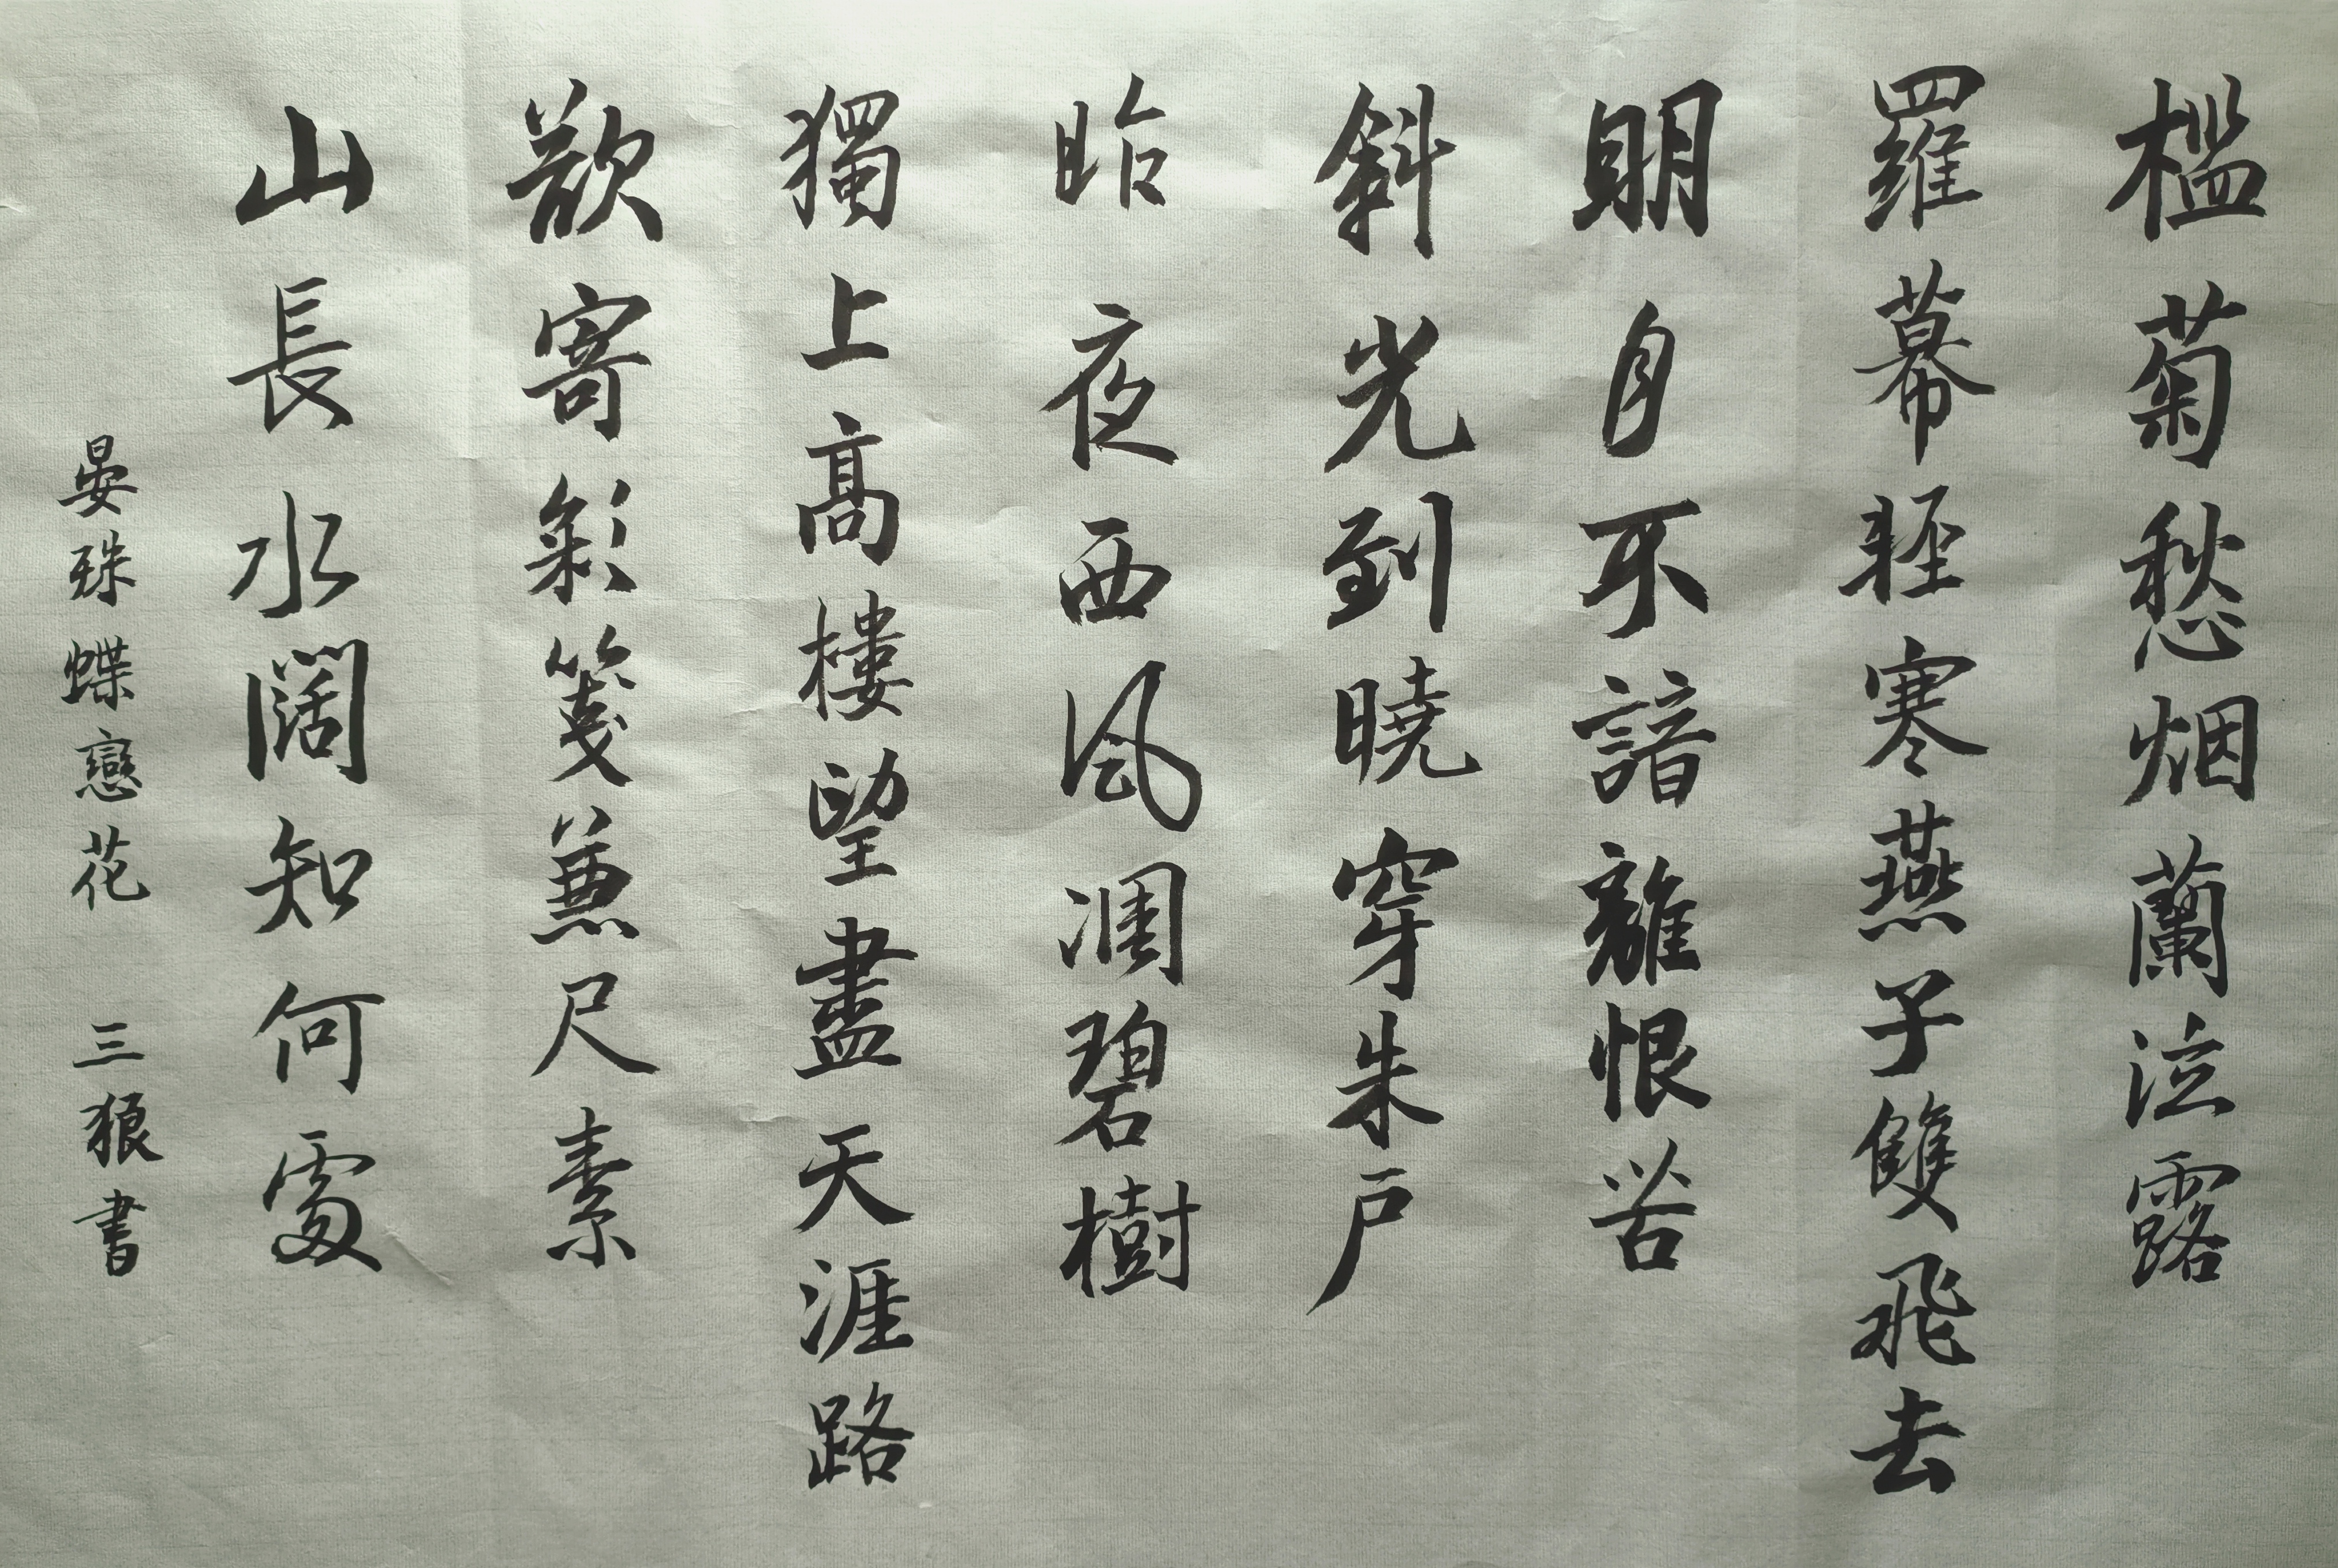 檻菊愁烟蘭泣露
羅幕輕寒燕子雙飛去
明月不諳離恨苦
斜光到曉穿朱户
昨夜西風凋碧樹
獨上髙樓望盡天涯路
欲寄彩箋兼尺素
山長水闊知何處
晏殊蝶戀花 三狼書